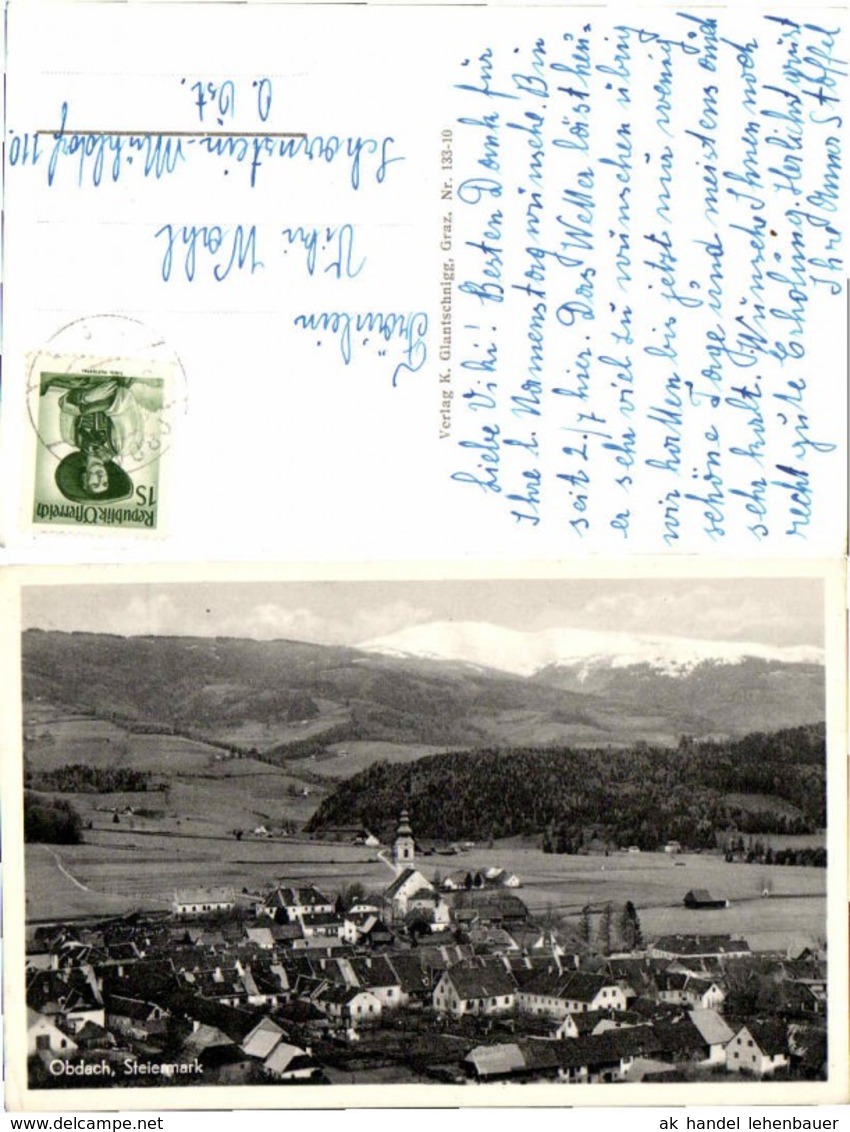 Liebe Viki! Besten Dank für
Ihre l. Namenstagwünsche. Bin
seit 2./7 hier. Das Wetter läßt heu-
er sehr viel zu wünschen übrig
wir hatten bis jetzt nur wenig
schöne Tage und meistens auch
sehr kalt. Wünsche Ihnen noch
recht gute Erholung. Herlichst grüßt
Ihre Stoffel
Verlag K. Glantschnigg, Graz. Nr. 133-10
Fräulein
Viki Wahl
Scharnstein-Mühldorf 110.
O. Öst.
1S
Republik Österreich
Obdach, Steiermark
ak handel lehenbauer